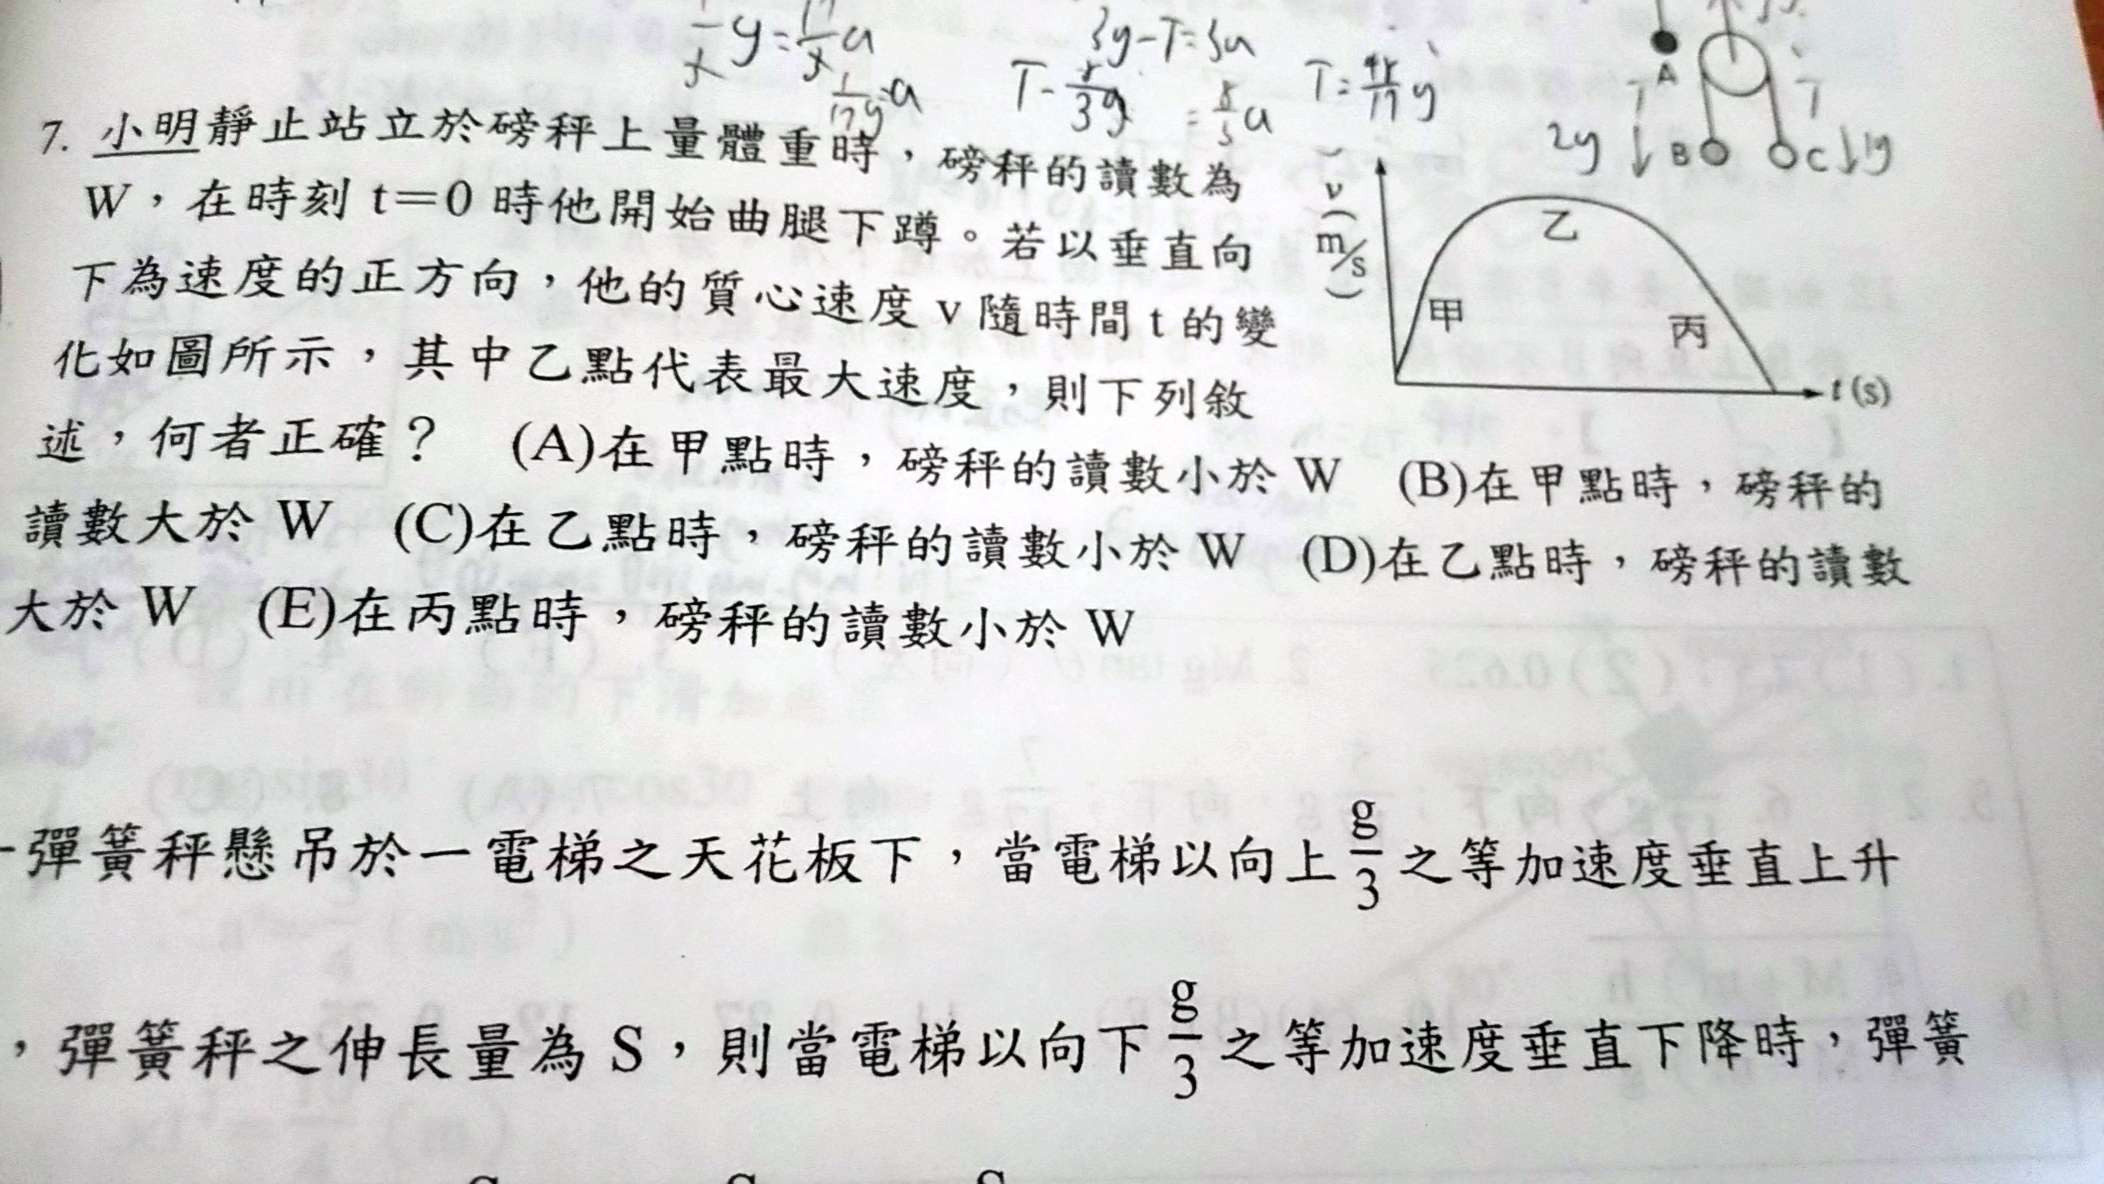 3g-T=3a
T=45/17 g
A
T
T
2g
B
C
1g
7. 小明靜止站立於磅秤上量體重時，磅秤的讀數為
W，在時刻 t＝0 時他開始曲腿下蹲。若以垂直向
下為速度的正方向，他的質心速度 v 隨時間 t 的變
化如圖所示，其中乙點代表最大速度，則下列敘
述，何者正確？ (A)在甲點時，磅秤的讀數小於 W (B)在甲點時，磅秤的
讀數大於 W (C)在乙點時，磅秤的讀數小於 W (D)在乙點時，磅秤的讀數
大於 W (E)在丙點時，磅秤的讀數小於 W
v(m/s)
甲
乙
丙
t (s)
彈簧秤懸吊於一電梯之天花板下，當電梯以向上 g/3 之等加速度垂直上升
，彈簧秤之伸長量為 S，則當電梯以向下 g/3 之等加速度垂直下降時，彈簧